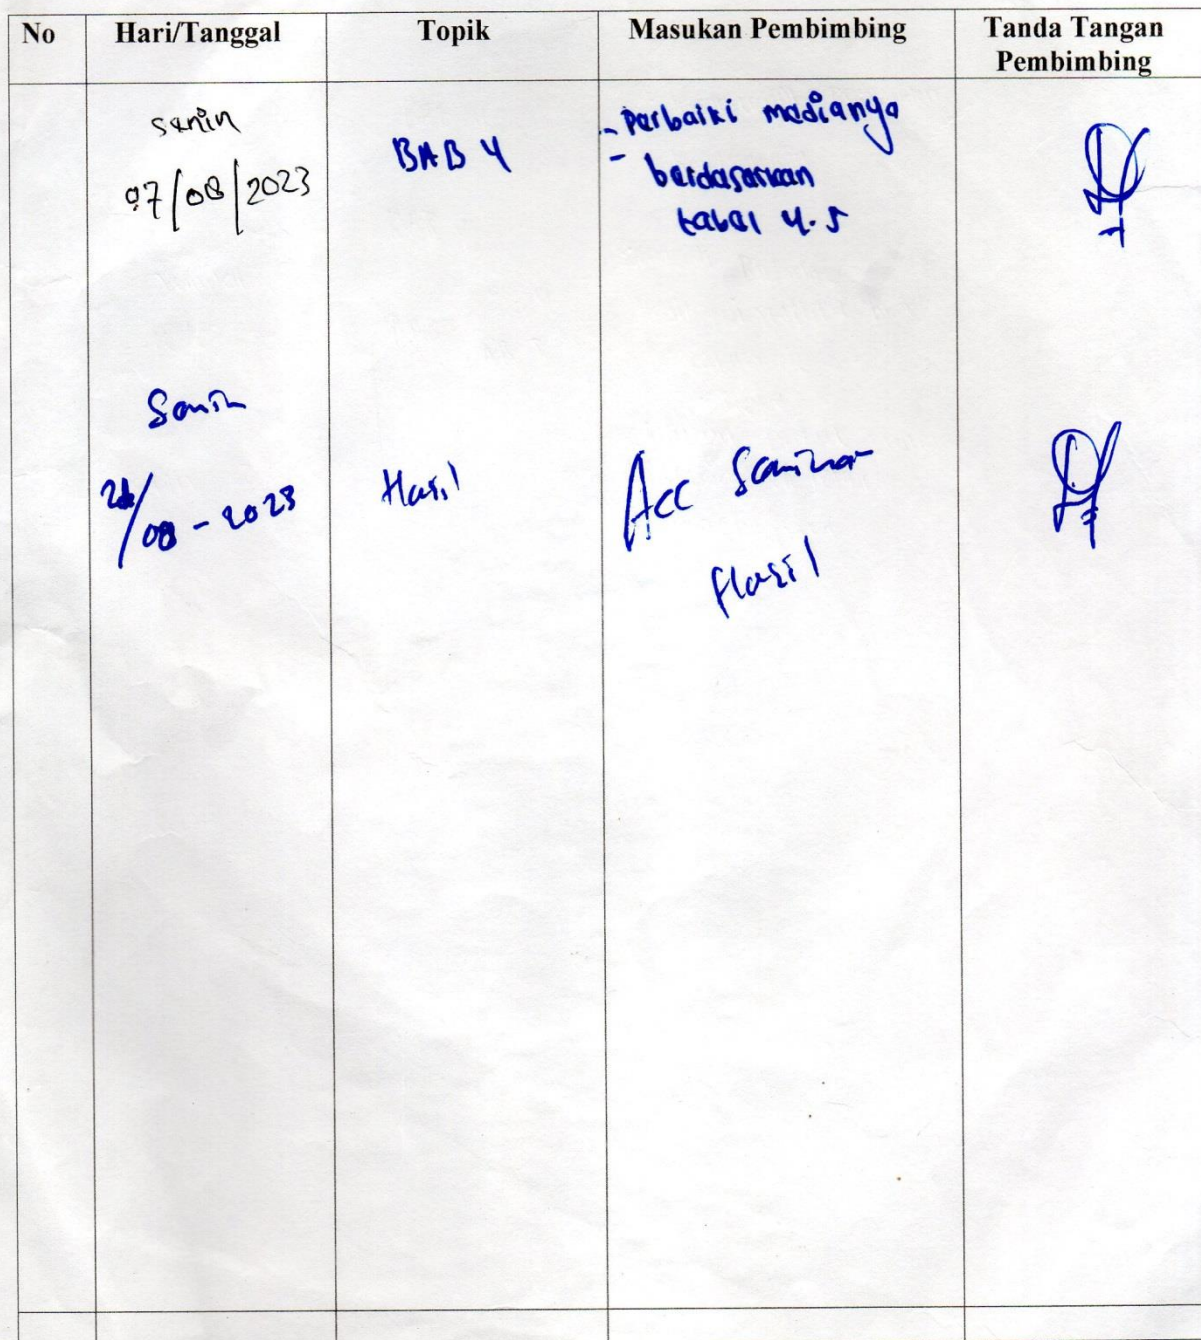 No Hari/Tanggal Topik Masukan Pembimbing Tanda Tangan Pembimbing
senin
07/08/2023
BAB 4
- Perbaiki medianya
- berdasarkan
tabel 4.5
Senin
/08-2023
Hasil
Acc Seminar
Hasil